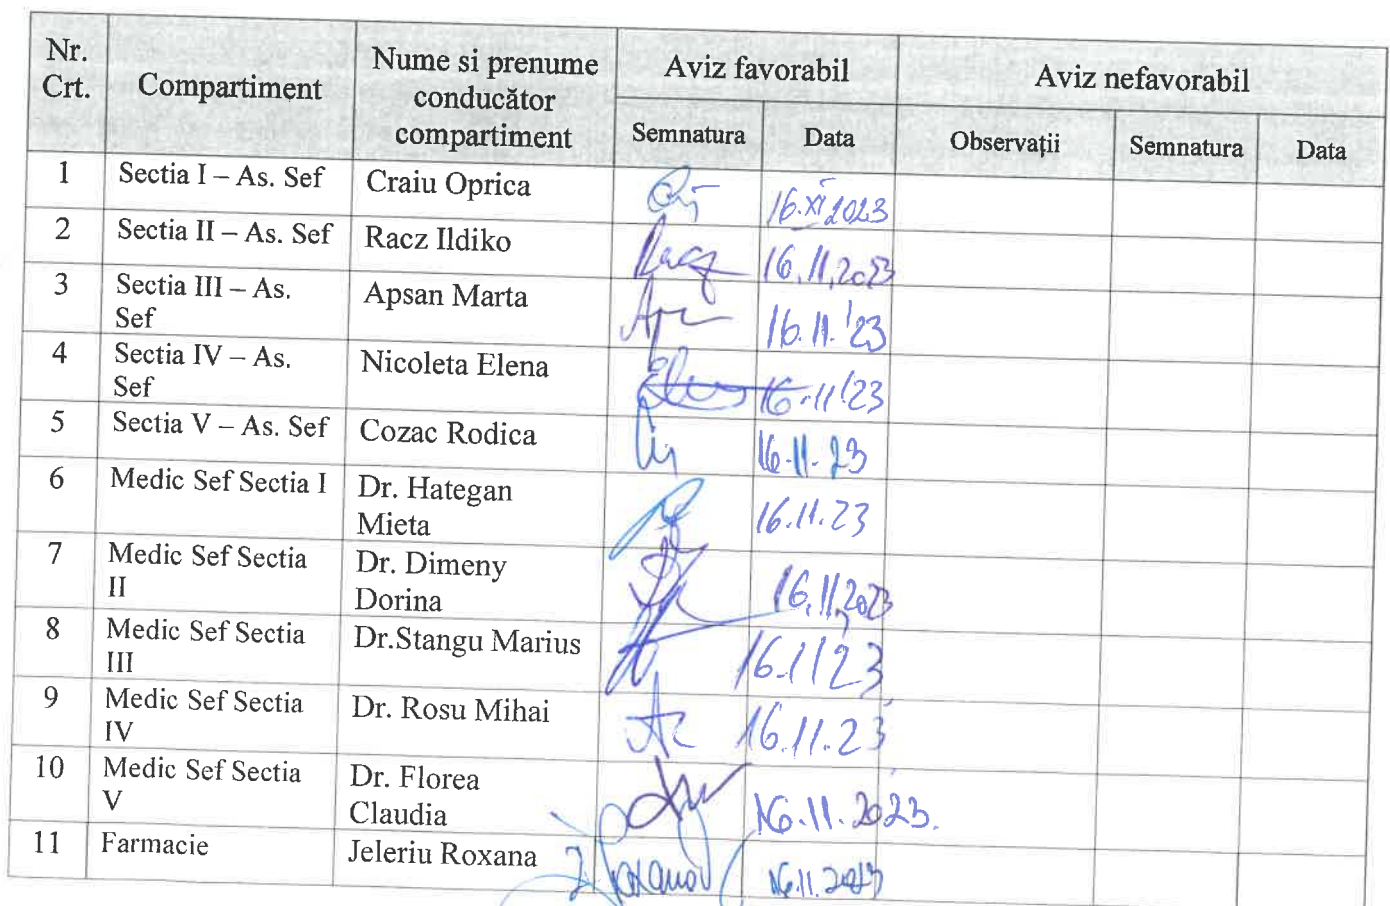 Nr. Crt.
Compartiment
Nume si prenume conducător compartiment
Aviz favorabil
Aviz nefavorabil
Semnatura
Data
Observații
Semnatura
Data
1 Sectia I – As. Sef Craiu Oprica 16.XI.2023
2 Sectia II – As. Sef Racz Ildiko Racz 16.11.2023
3 Sectia III – As. Sef Apsan Marta 16.11.'23
4 Sectia IV – As. Sef Nicoleta Elena 16-11'23
5 Sectia V – As. Sef Cozac Rodica 16-11-23
6 Medic Sef Sectia I Dr. Hategan Mieta 16.11.23
7 Medic Sef Sectia II Dr. Dimeny Dorina 16.11.2023
8 Medic Sef Sectia III Dr.Stangu Marius 16.11 23
9 Medic Sef Sectia IV Dr. Rosu Mihai 16.11.23
10 Medic Sef Sectia V Dr. Florea Claudia 16.11.2023.
11 Farmacie Jeleriu Roxana 16.11.2023